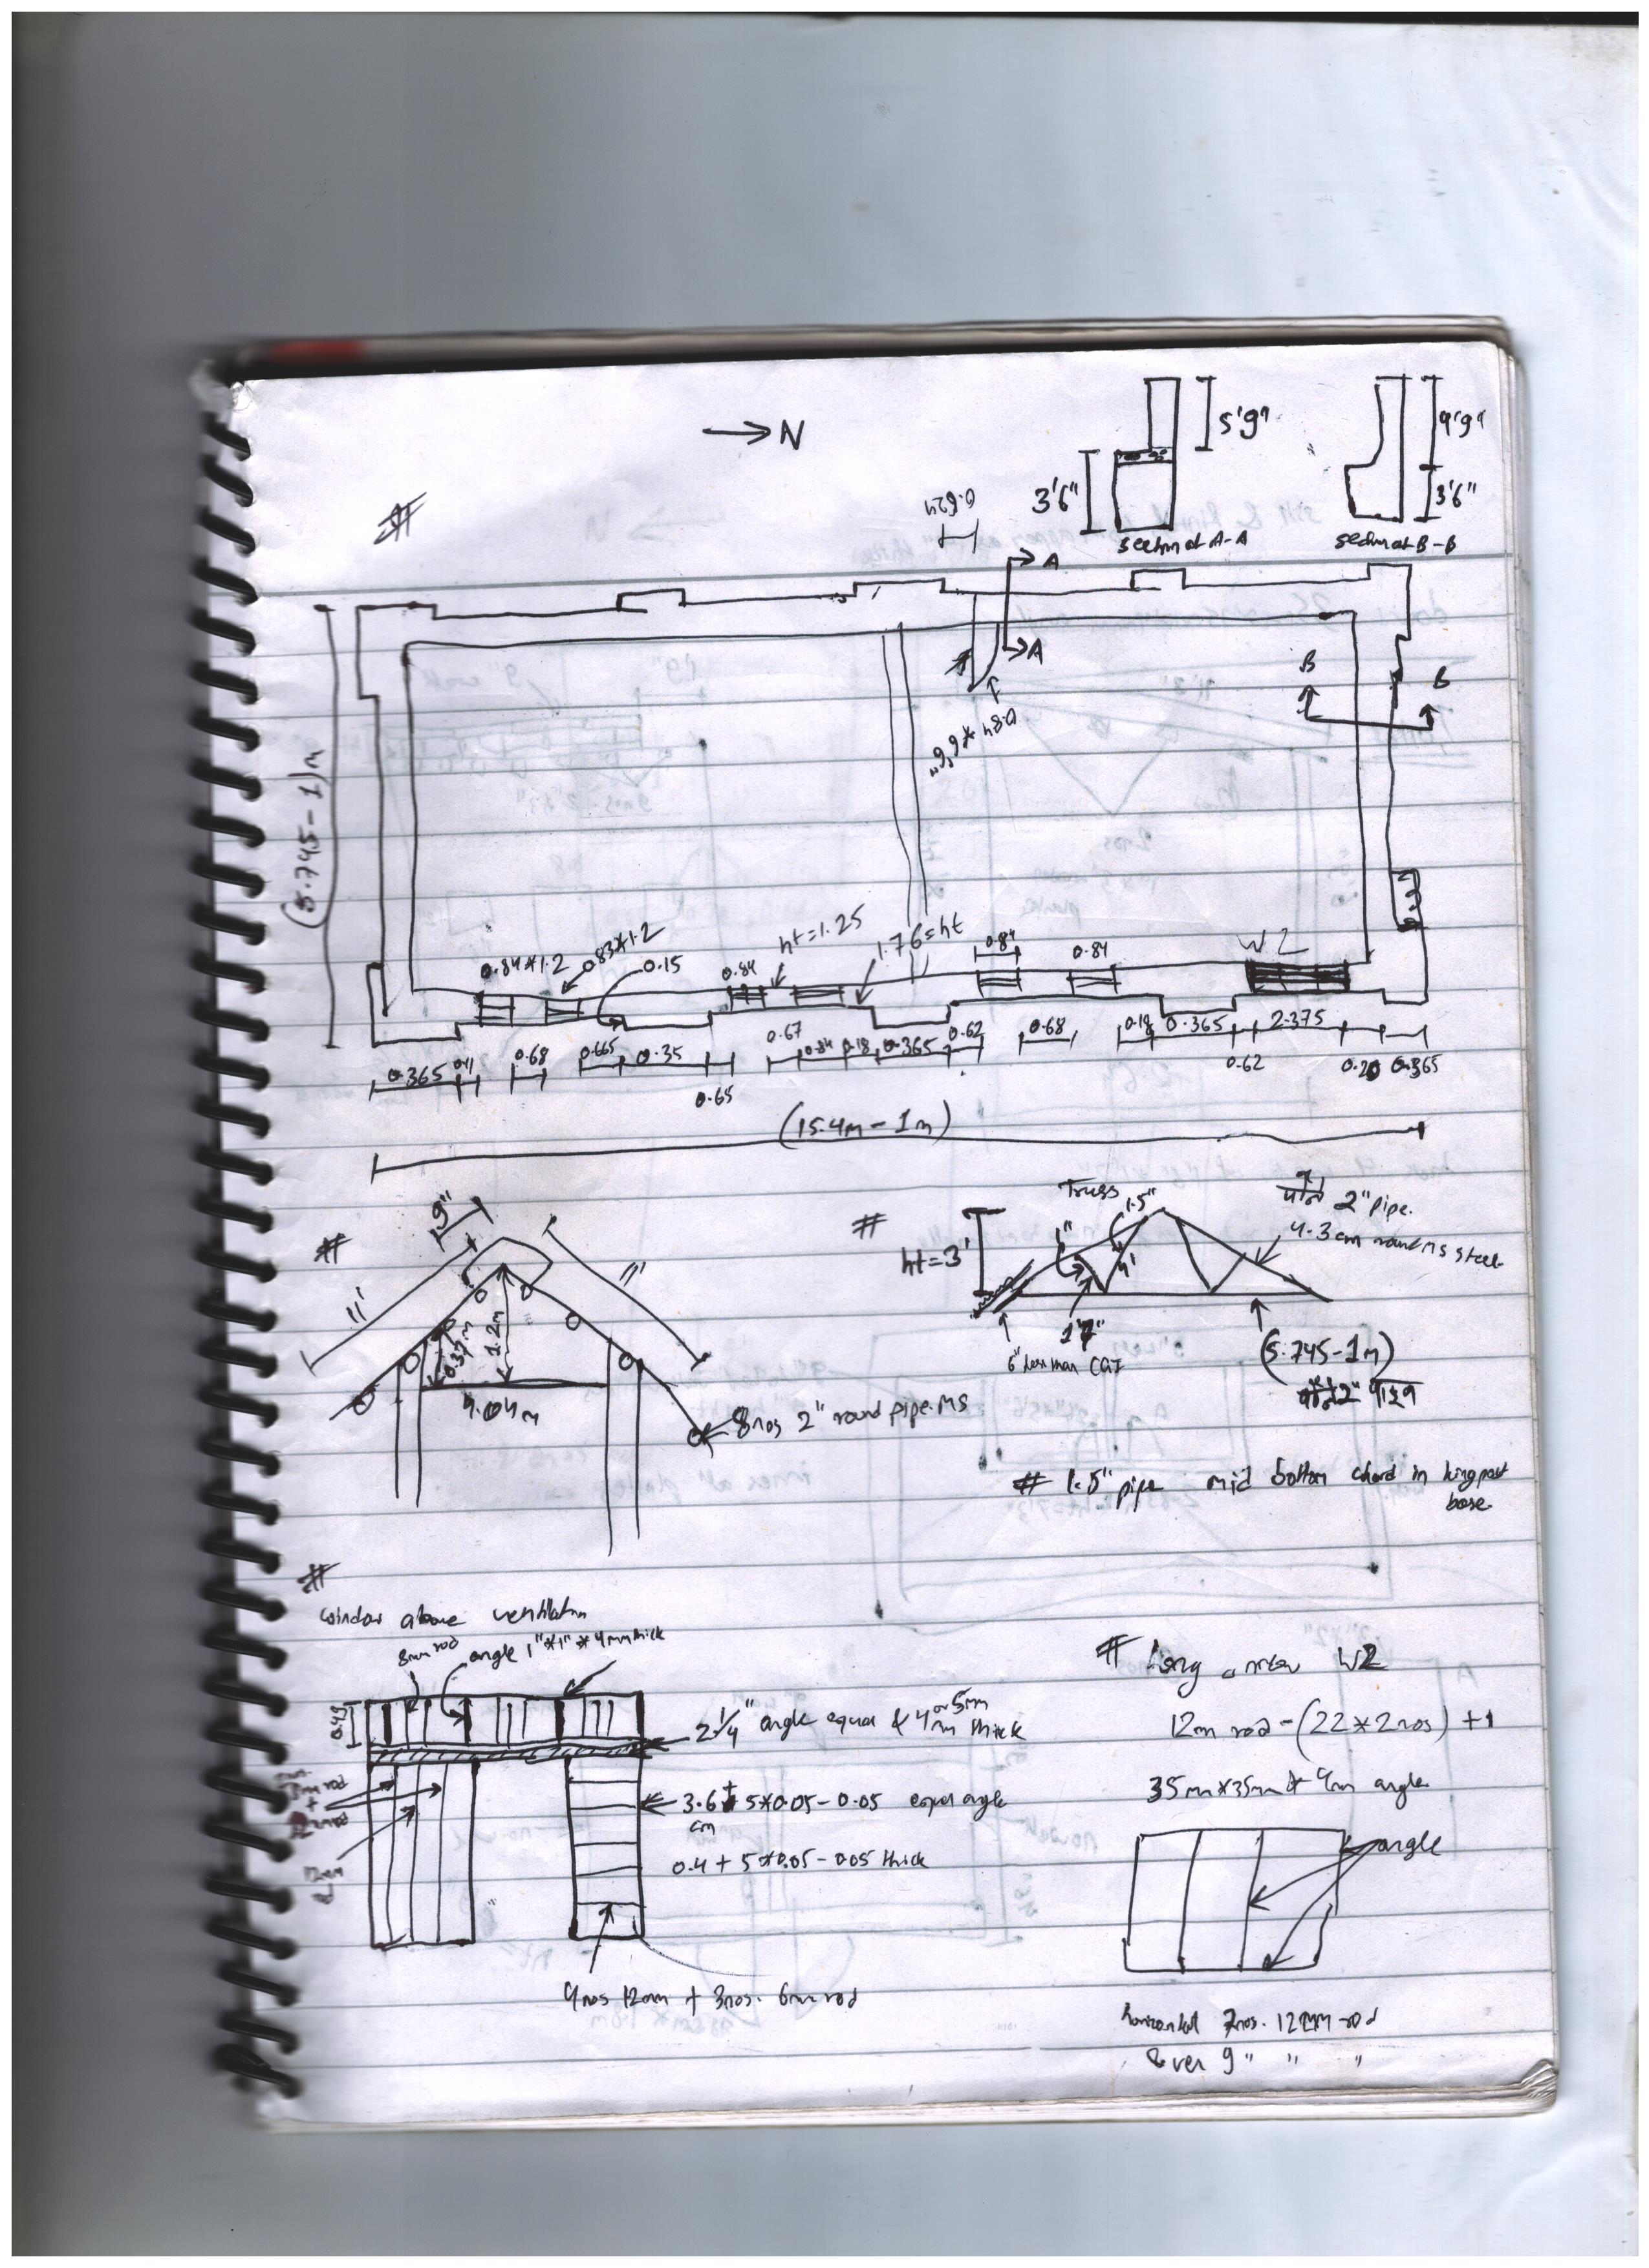 → N
5'9"
9'9"
3'6"
3'6"
section at A-A
section at B-B
0.624
A
A
B
B
0.84*6'6"
(5.745-1)m
0.84*1.2
0.83*1.2
0.15
0.84
ht=1.25
1.76=ht
0.84
0.84
W2
0.365
0.68
0.665
0.35
0.65
0.67
0.84
0.18
0.365
0.62
0.68
0.18
0.365
0.62
2.375
0.20
0.365
(15.4m-1m)
#
9"
11'
11'
0.37m
1.2m
4.04m
8nos 2" round pipe.MS
#
Truss
ht=3'
1"
1.5"
2" pipe.
4.3cm round MS steel
6" less than CGI
(5.745-1m)
# 1.5" pipe mid bottom chord in kingpost
base.
#
window above ventilation
8mm rod
angle 1"*1"*4mm thick
0.49
2 1/4" angle equal & 4 or 5mm thick
3.6+5*0.05-0.05 equal angle
cm
0.4+5*0.05-0.05 thick
12mm
4nos 12mm + 3nos. 6mm rod
# long window W2
12m rod-(22*2nos)+1
35mm*35mm*4m angle
angle
horizontal 7nos. 12mm rod
& ver 9 " " "